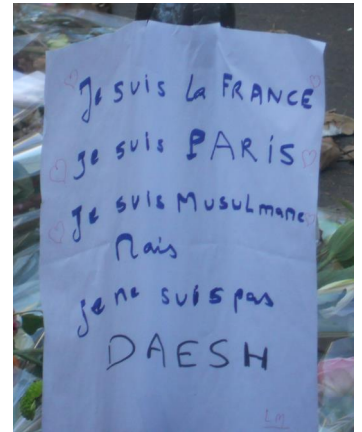 Je suis la FRANCE
je suis PARiS
Je suis Musulmane
Mais
je ne suis pas
DAESH
LM